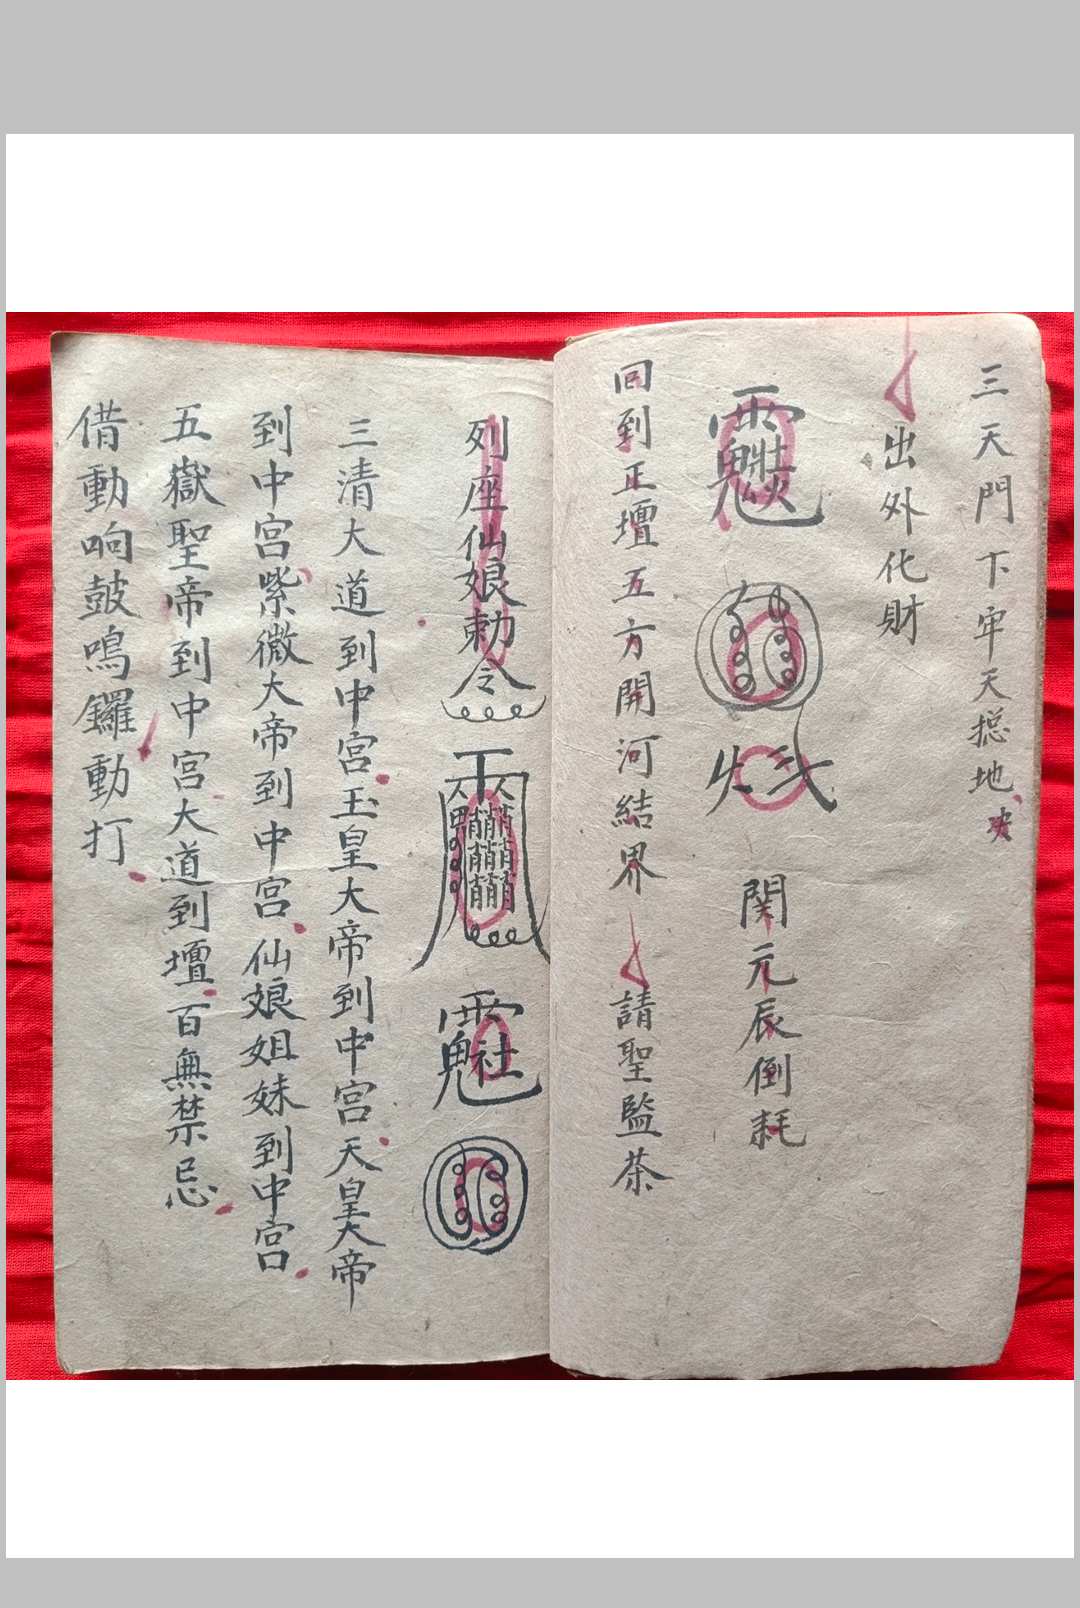 三天門下牢天摠地决
出外化財
関元辰倒耗
回到正壇五方開河結界
請聖監茶
列座仙娘勅令
三清大道到中宮玉皇大帝到中宮天皇大帝
到中宮紫微大帝到中宮仙娘姐妹到中宮
五嶽聖帝到中宮大道到壇百無禁忌
借動响鼓鳴鑼動打